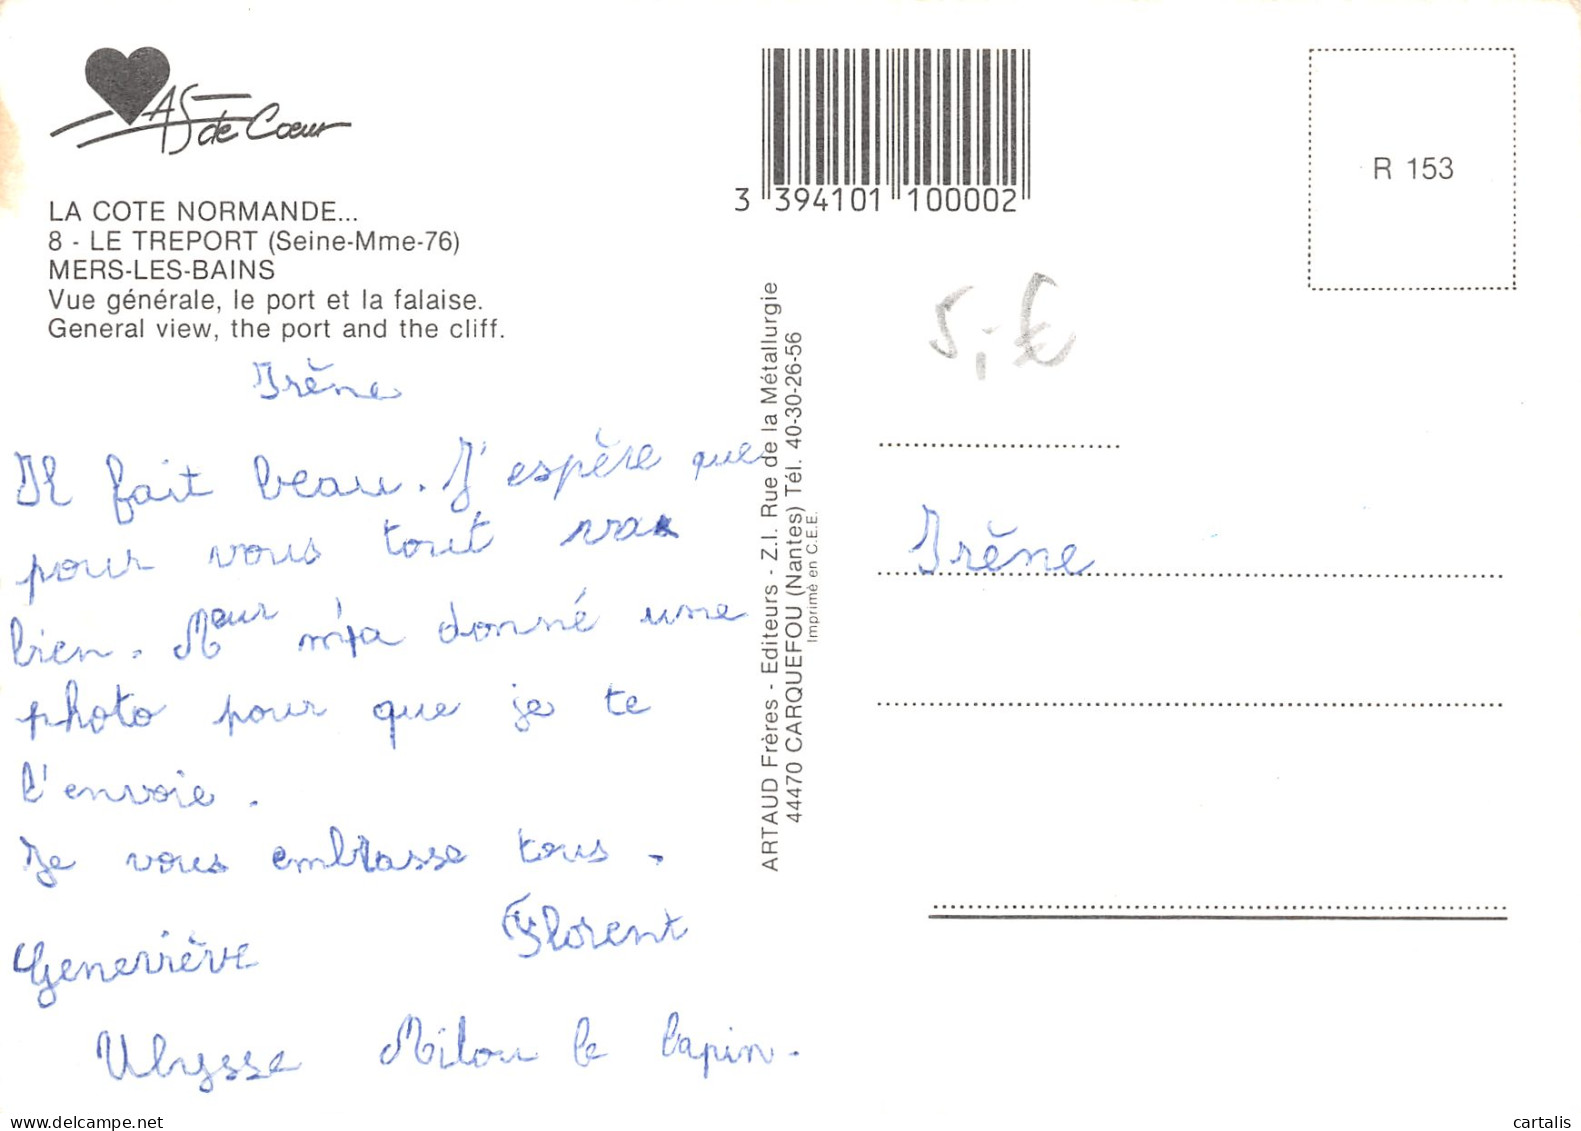 AS de Cœur
LA COTE NORMANDE...
8 - LE TREPORT (Seine-Mme-76)
MERS-LES-BAINS
Vue générale, le port et la falaise.
General view, the port and the cliff.
Irène
Il fait beau. J'espère que
pour vous tout va
bien. m'a donné une
photo pour que je te
l'envoie.
Je vous embrasse tous.
Florent
Geneviève
Ulysse Milou le lapin.
3 394101 100002
ARTAUD Frères - Editeurs - Z.I. Rue de la Métallurgie
44470 CARQUEFOU (Nantes) Tél. 40-30-26-56
Imprimé en C.E.E.
R 153
5,-€
Irène
cartalis